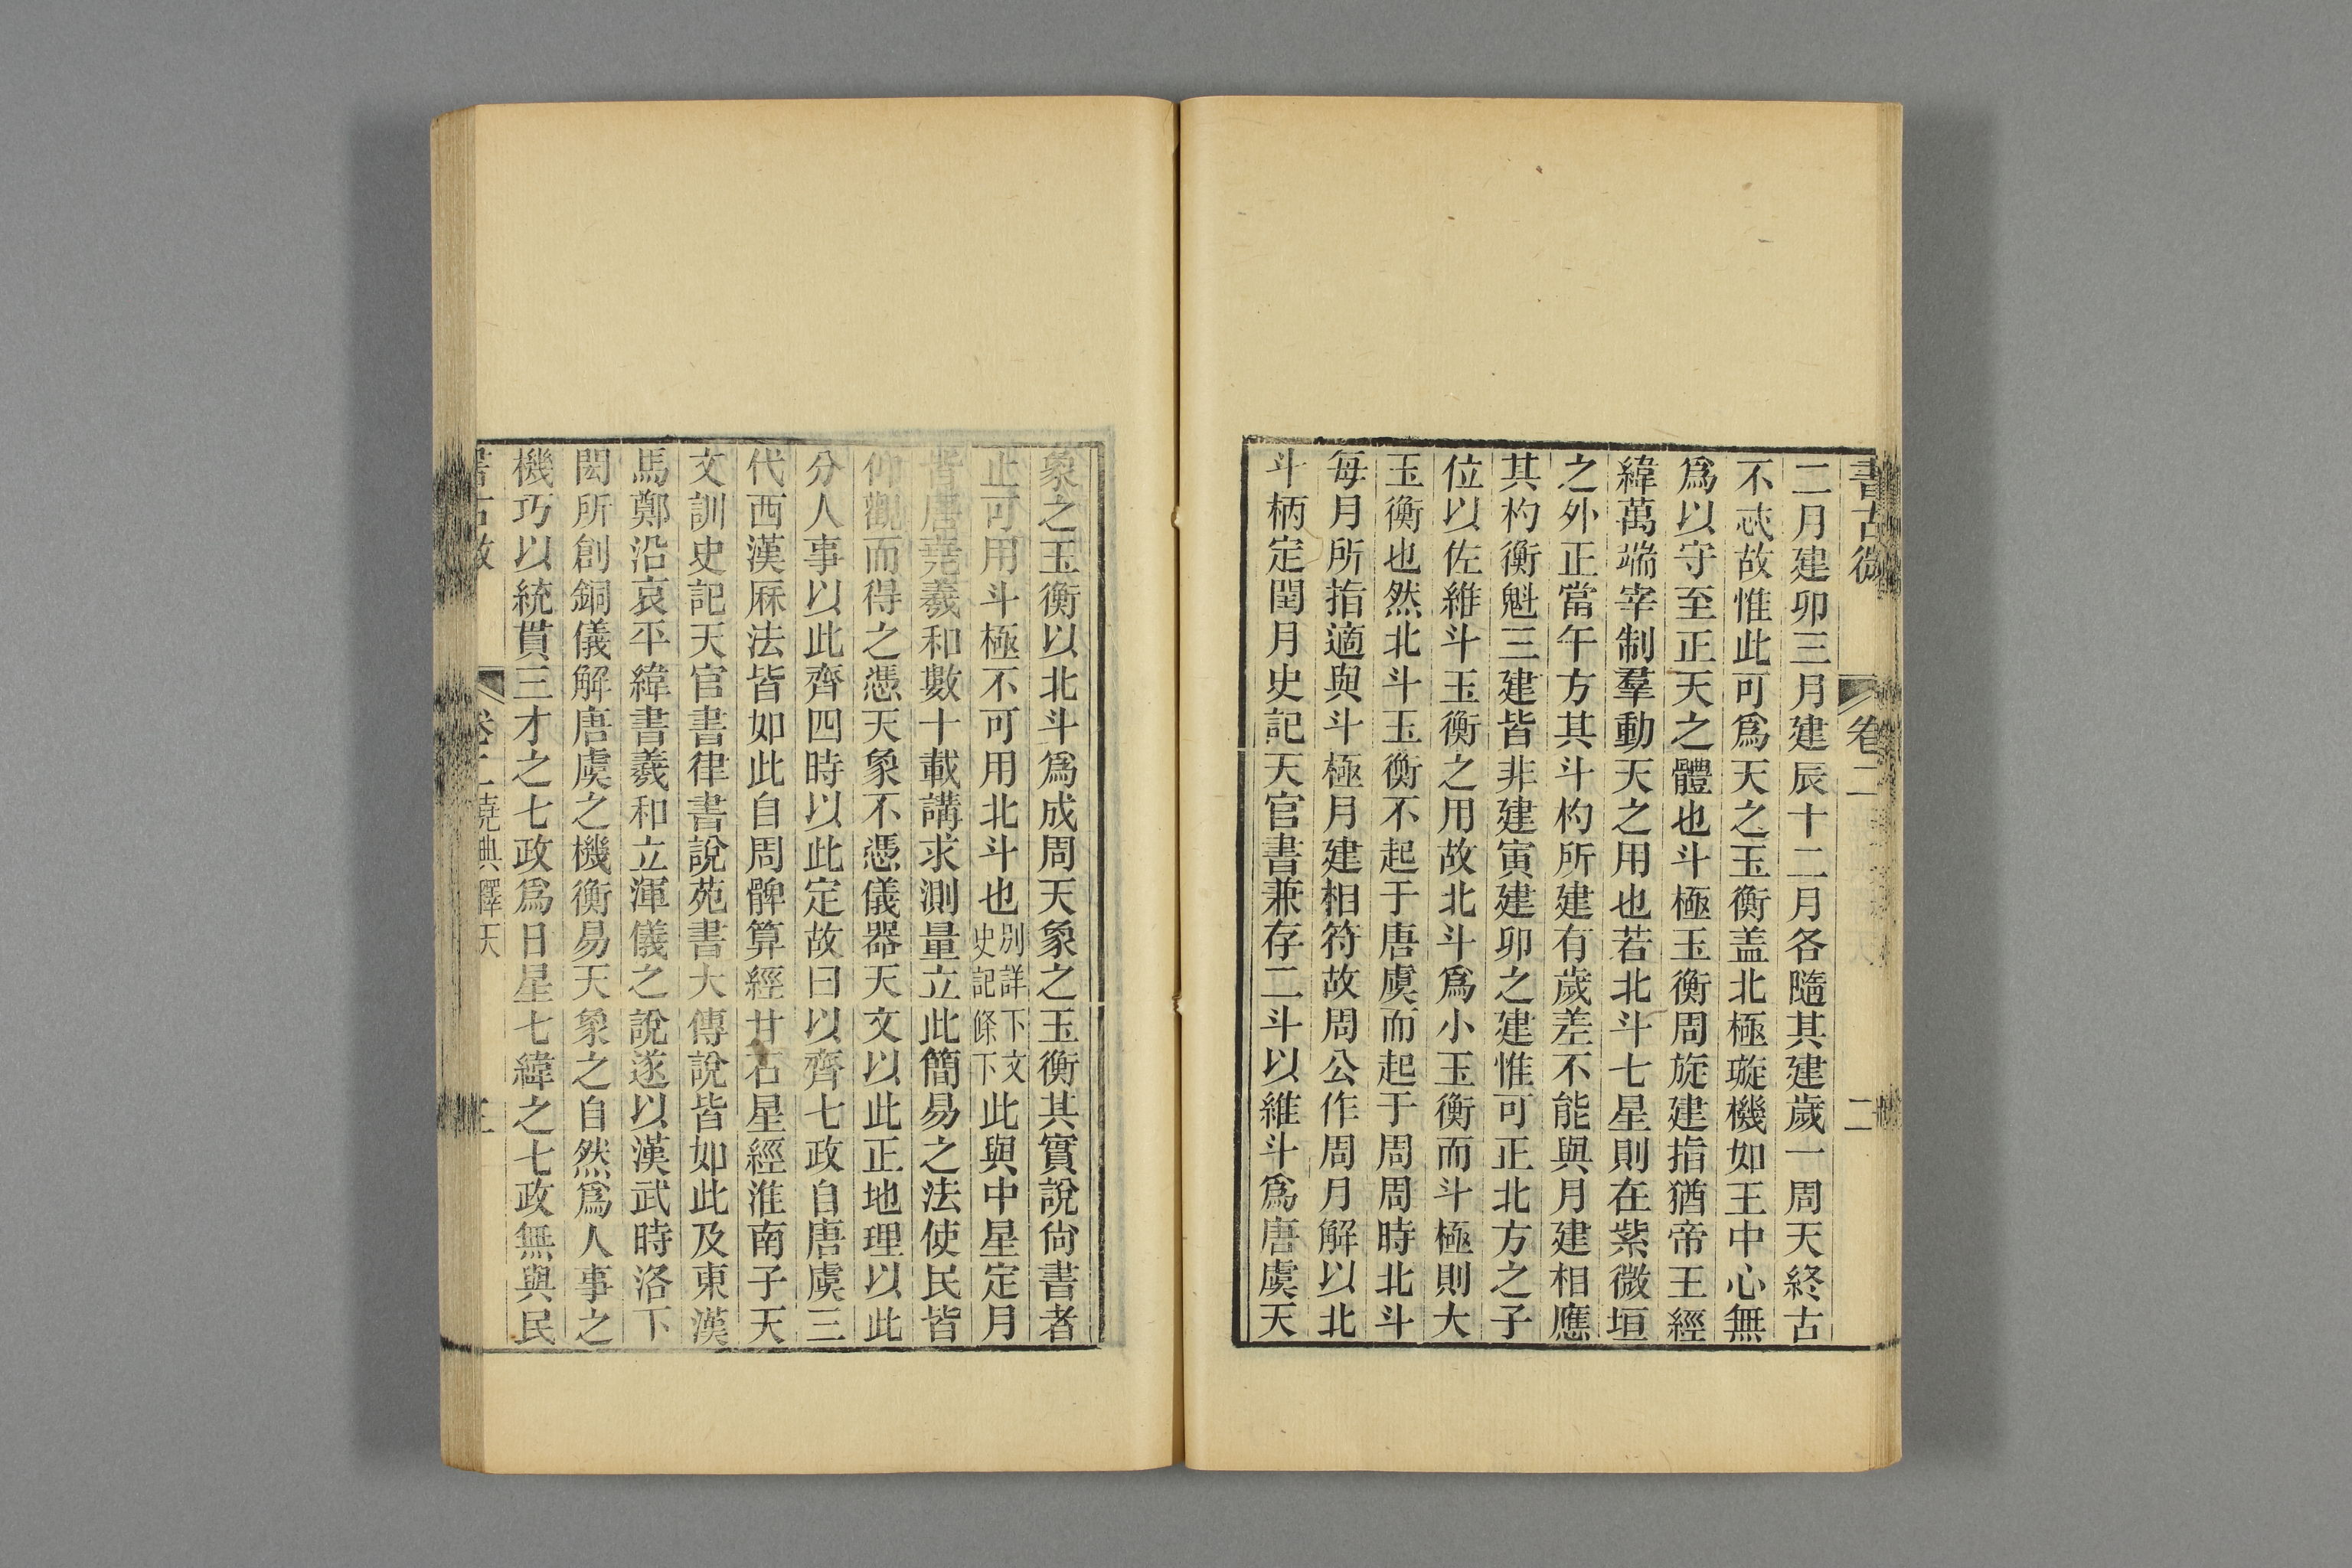 書古微 卷二 二
二月建卯三月建辰十二月各隨其建歲一周天終古
不忒故惟此可爲天之玉衡盖北極璇機如王中心無
爲以守至正天之體也斗極玉衡周旋建指猶帝王經
緯萬端宰制羣動天之用也若北斗七星則在紫微垣
之外正當午方其斗杓所建有歲差不能與月建相應
其杓衡魁三建皆非建寅建卯之建惟可正北方之子
位以佐維斗玉衡之用故北斗爲小玉衡而斗極則大
玉衡也然北斗玉衡不起于唐虞而起于周周時北斗
每月所指適與斗極月建相符故周公作周月解以北
斗柄定閏月史記天官書兼存二斗以維斗爲唐虞天
象之玉衡以北斗爲成周天象之玉衡其實說尙書者
止可用斗極不可用北斗也別詳下文史記條下此與中星定月
皆唐堯羲和數十載講求測量立此簡易之法使民皆
仰觀而得之憑天象不憑儀器天文以此正地理以此
分人事以此齊四時以此定故曰以齊七政自唐虞三
代西漢厤法皆如此自周髀算經甘石星經淮南子天
文訓史記天官書律書說苑書大傳說皆如此及東漢
馬鄭沿哀平緯書羲和立渾儀之說遂以漢武時洛下
閎所創銅儀解唐虞之機衡易天象之自然爲人事之
機巧以統貫三才之七政爲日星七緯之七政無與民
書古微 卷二堯典釋天 三